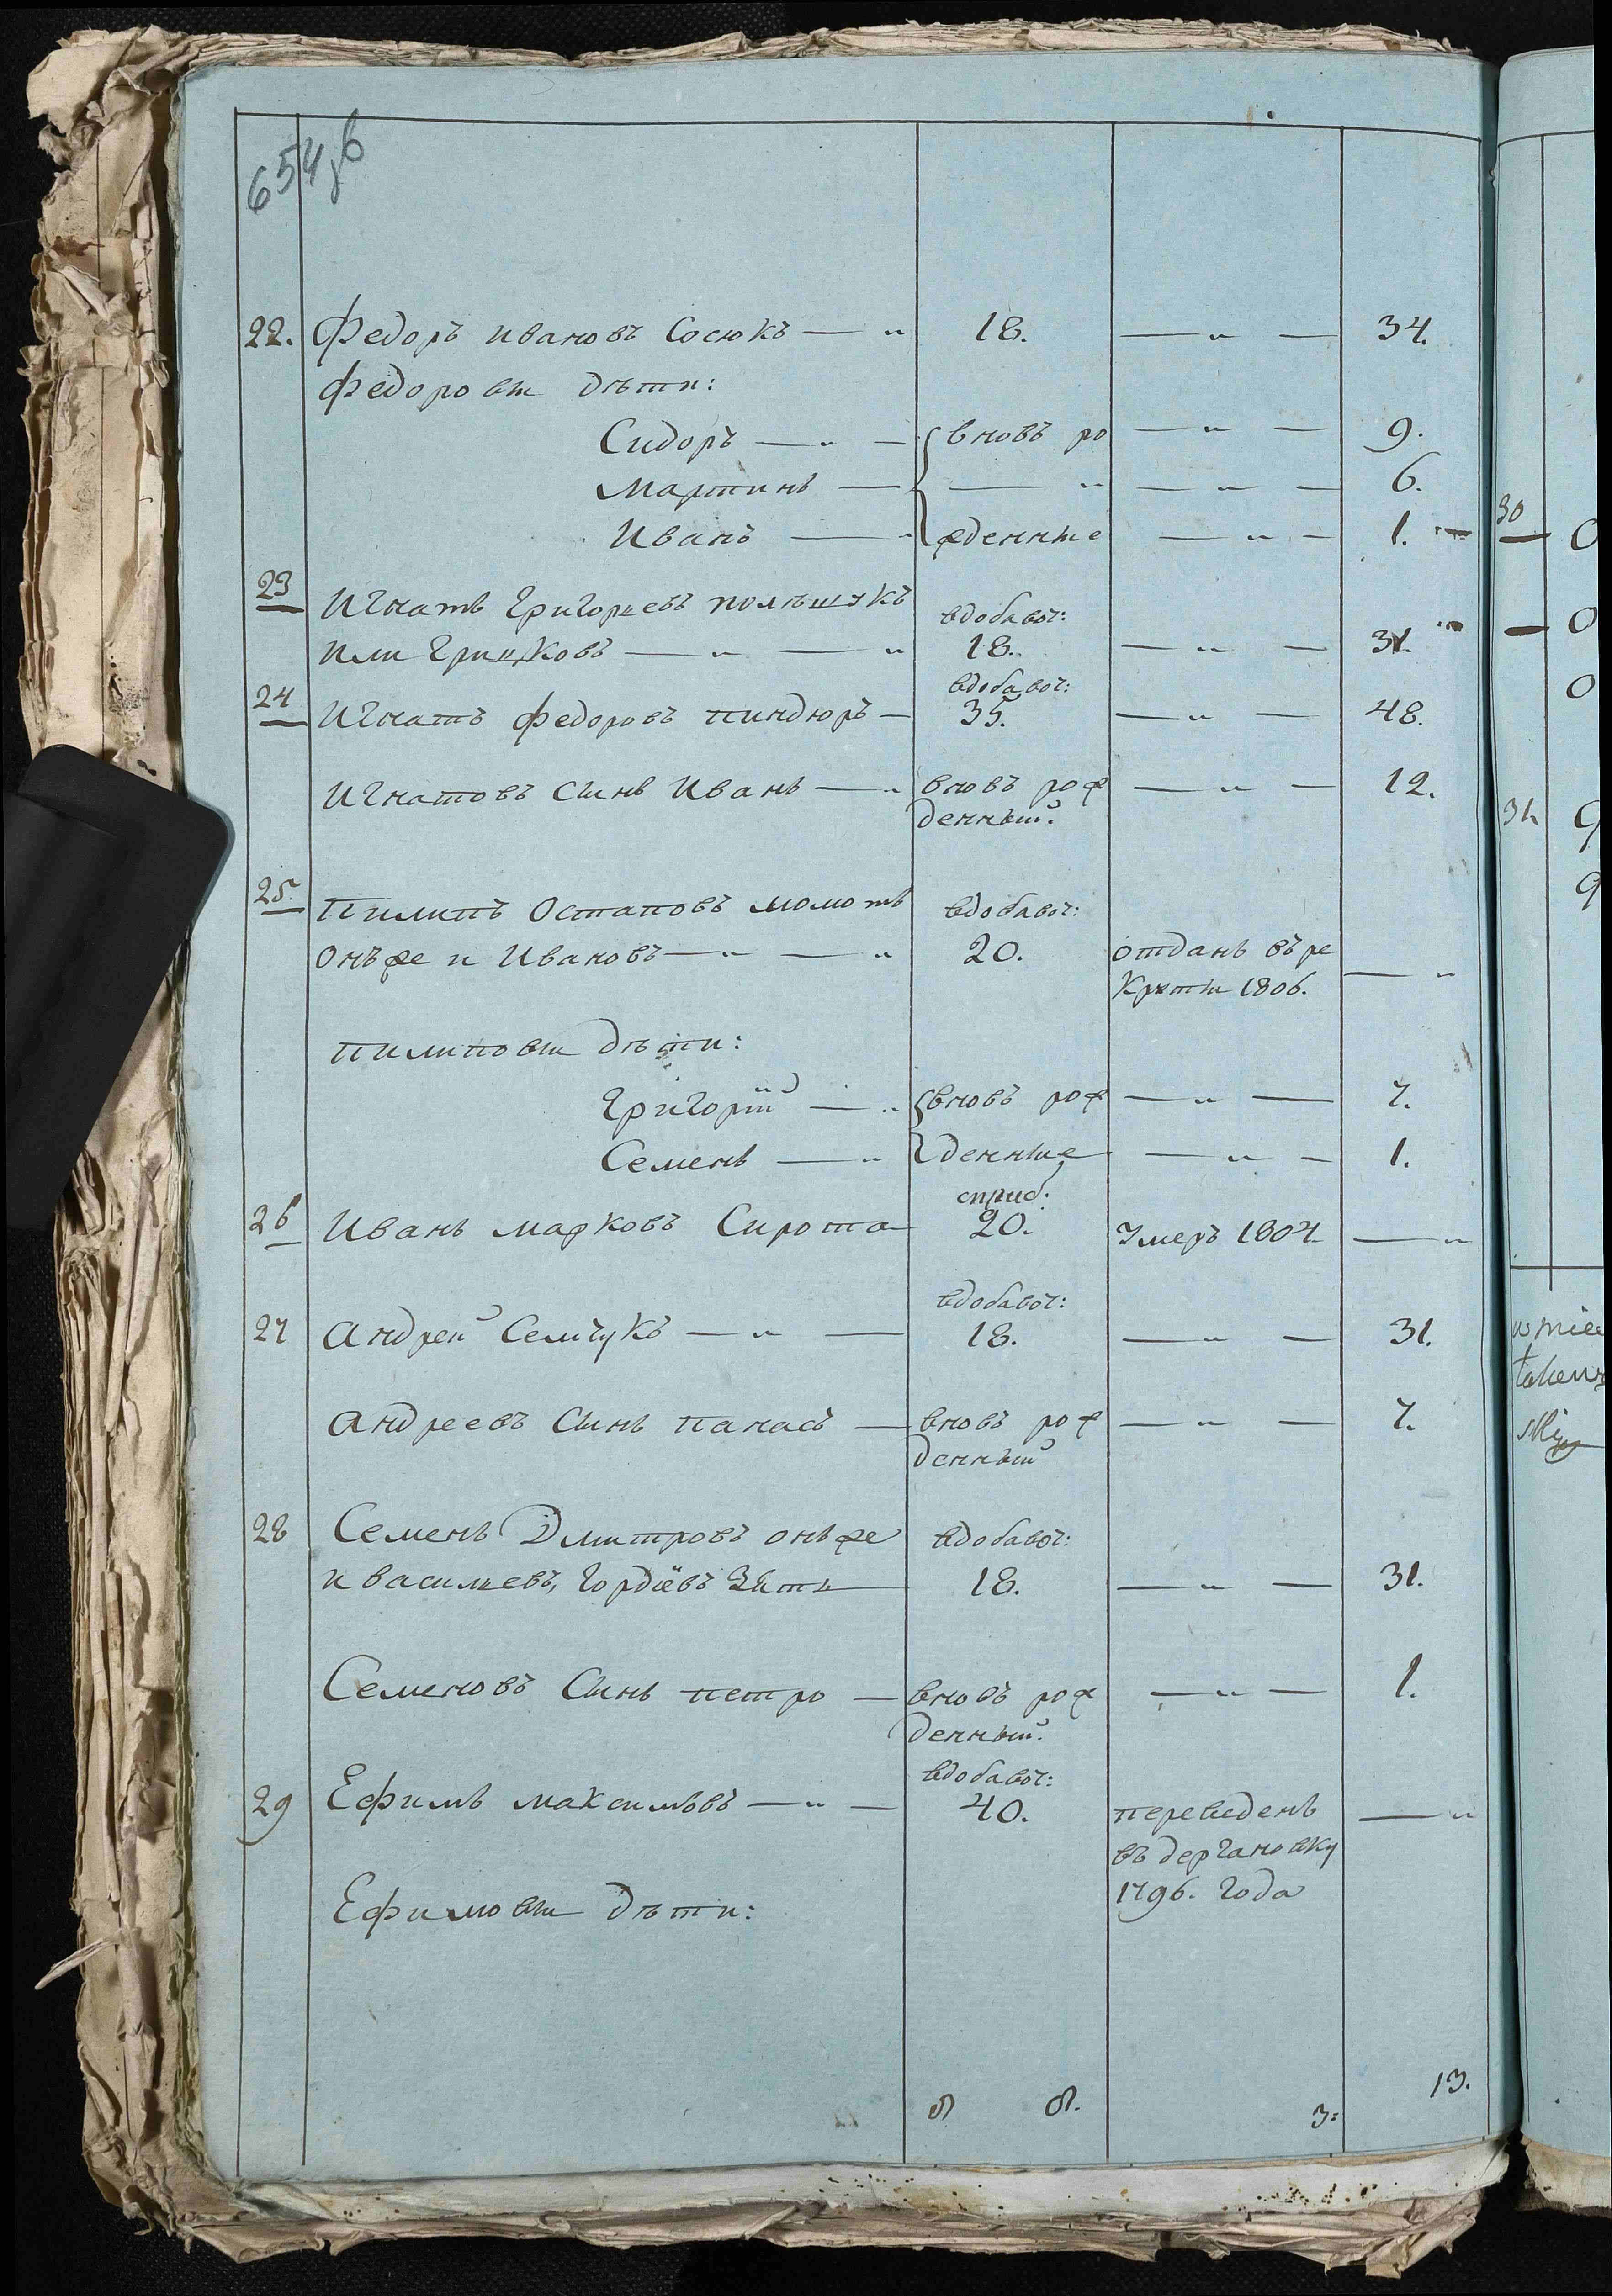 654зв
22. Федоръ ивановъ Сосюкъ — „ 18. — „ — 34.
Федоровы дѣти:
Сидоръ — „ — вновь ро — „ — 9.
Мартинъ — — „ — „ — 6.
Иванъ — жденные — „ — 1.
23 Игнатъ Григорьевъ полѣшукъ вдобавоч:
или Гринковъ — „ — „ 18. — „ — 31.
24 Игнатъ Федоровъ пиндюръ — вдобавоч: 35. — „ — 48.
Игнатовъ сынъ Иванъ — „ вновь рож — „ — 12.
денный.
25. Пилипъ Остаповъ момотъ вдобавоч:
онъже и Ивановъ — „ — „ 20. отданъ въ ре — „
круты 1806.
пилиповы дѣти:
Григорій — „ вновь рож — „ — 7.
Семенъ — „ денные — „ — 1.
26 Иванъ марковъ Сирота сприб. 20. Умеръ 1804 — „
27 андрей Семчукъ — „ — вдобавоч: 18. — „ — 31.
андреевъ сынъ панасъ — вновь рож — „ — 7.
денный
28 Семенъ Дмитровъ онъже вдобавоч:
и васильевъ, Гордіевъ Зять 18. — „ — 31.
Семеновъ сынъ петро — вновь рож — „ — 1.
денный.
29 Ефимъ максимовъ — „ — вдобавоч: 40. переведенъ — „
въ дергановку
1796. года
Ефимовы дѣти:
8 8. 3: 13.
30
31